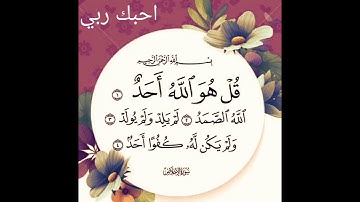 احبك ربي
بِسْمِ ٱللَّهِ ٱلرَّحْمَٰنِ ٱلرَّحِيمِ
قُلْ هُوَ ٱللَّهُ أَحَدٌ ١
ٱللَّهُ ٱلصَّمَدُ ٢ لَمْ يَلِدْ وَلَمْ يُولَدْ ٣
وَلَمْ يَكُن لَّهُۥ كُفُوًا أَحَدٌۢ ٤
سورة الإخلاص